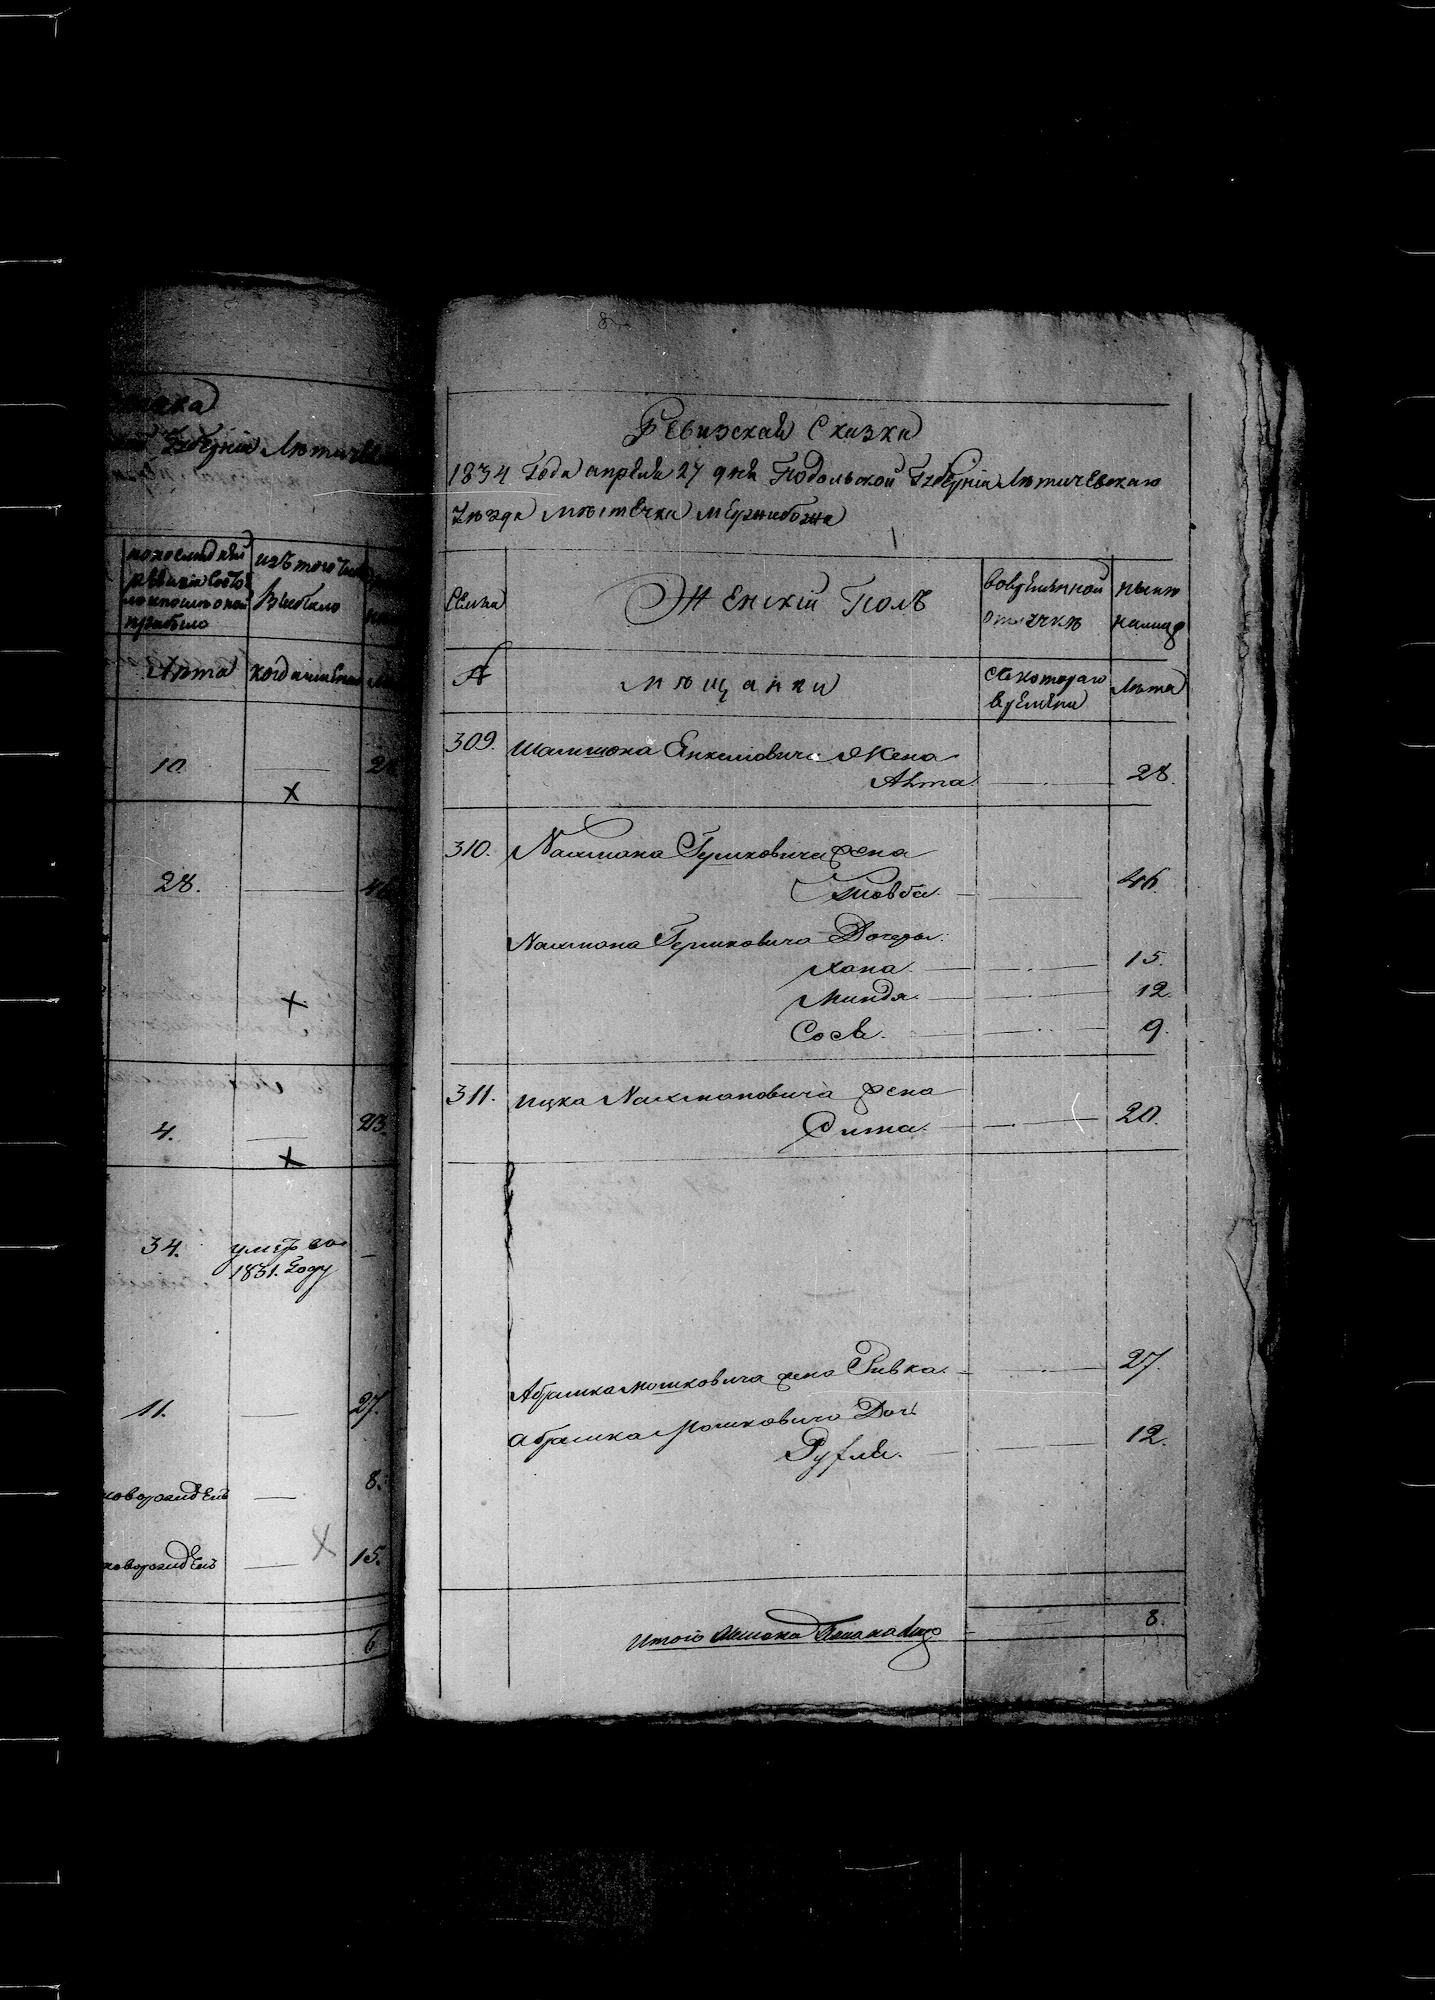 Губерніи Летичев
по последней
ревизіи состо
яло и после оной
прибыло
изъ того числа
Выбыло
Лета
когда именно
10
28.
4.
23.
34.
умеръ во
1831. Году
11.
27.
новорожденъ
8.
новорожденъ
15.
6
Ревизская Сказка
1834 Года апреля 27 дня Подольской Губерніи Летичевскаго
Уезда местечка Меджибожа
Семьи
Женскій Полъ
во временной
отлучке
ныне
на лицо
мещанки
с котораго
времени
Лета
309. Янкелiовича Жена
28.
310. Нахмана Гершковича жена
46.
Нахмана Гершковича Дочери:
Хана 15.
Миндя 12.
Сося. 9.
311. Ицка Нахмановича жена
20.
Абрамка Мошковича жена Ривка. 27.
Абрамка Мошковича Дочь
12.
Итого женска Пола на лицо 8.